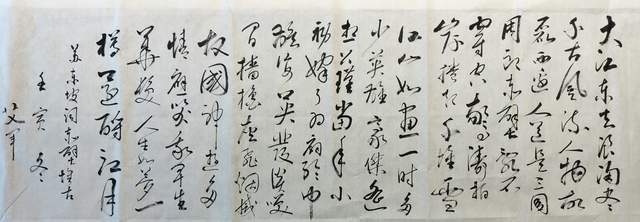 大江东去浪淘尽
千古风流人物故
垒西边人道是三国
周郎赤壁乱石
穿空惊涛拍
岸捲起千堆雪
江山如画一时多
少英雄豪傑遥
想公瑾当年小
初嫁了羽扇纶巾
雄姿英发谈笑
间樯橹灰飞烟灭
故國神遊多
情應笑我早生
華髮人生如夢一
樽还酹江月
苏东坡词赤壁怀古
壬寅冬